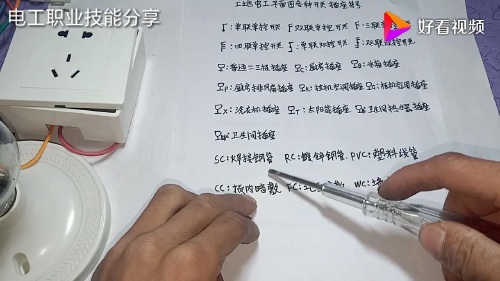 电工职业技能分享
好看视频
工地电工平面图各种开关插座符号
单联单控开关 双联单控开关 三联单控
四联单控开关 单联双控开关 双联双控开关
普通二三极插座 C:厨房插座 冰箱插座
P:厨房排风扇插座 K:挂机空调插座 柜机空调插座
X:洗衣机插座 T:太阳能插座 卫生间热水器插座
卫生间插座
SC:焊接钢管 RC:镀锌钢管 PVC:塑料线管
CC:板内暗敷 FC: WC: